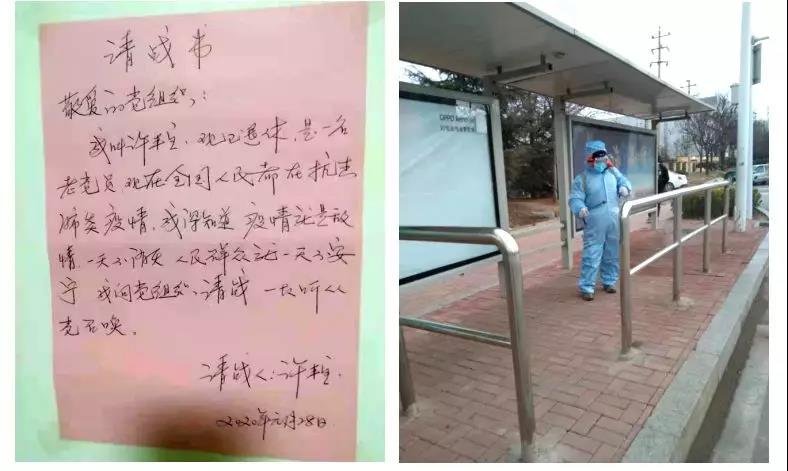 请战书
敬爱的党组织:
我叫许 现已退休, 是一名
老党员 现在全国人民都在抗击
肺炎疫情, 我深知道 疫情就是敌
情 一天不消灭 人民群众就一天不安
宁 我向党组织请战 一切听从
党召唤。
请战人: 许
2020年元月28日
OPPO Reno